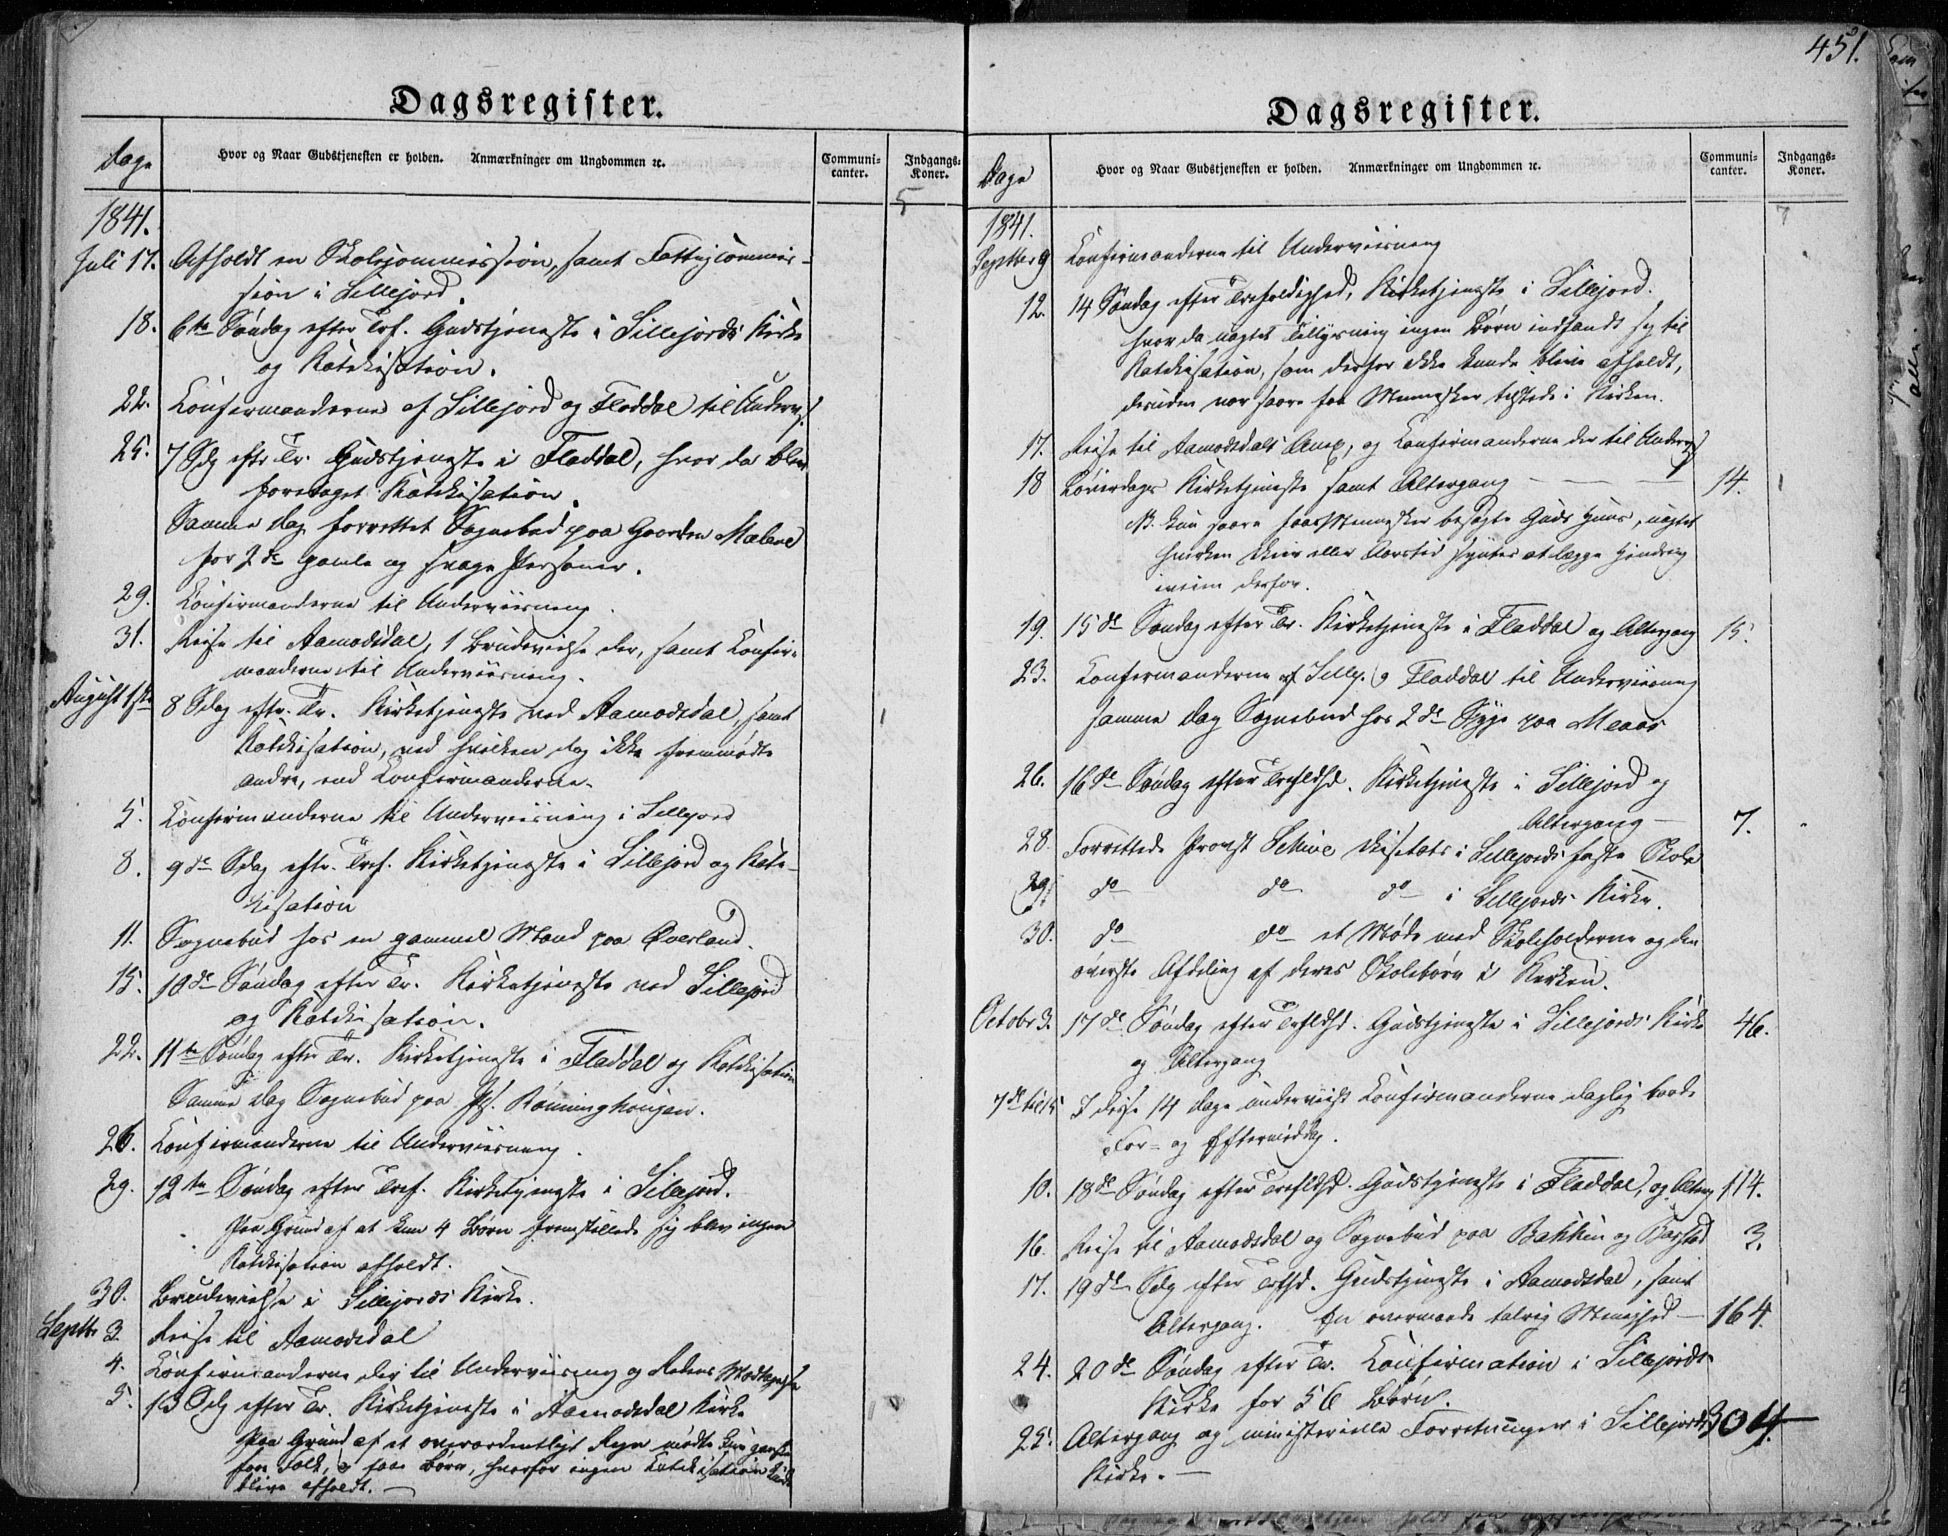 Dagsregister.
Dage
Hvor og Naar Gudstjenesten er holden. Anmærkninger om Ungdommen ꝛc.
Communi-
canter.
Indgangs-
Koner.
5
1841.
Juli 17. Afholdt en Skolecommission, samt Fattigcommis-
sion i Sillejord.
18. 6te Søndag efter Tref. Gudstjeneste i Sillejords Kirke
og Katekisation.
22. Confirmanderne af Sillejord og Fladdal til Underv.
25. 7 Sdg eftr Tr. Gudstjeneste i Fladdal, hvor da blev
foretaget Katekisation.
Samme Dag forrettet Sognebud paa Gaarden Mælene
for 2de gamle og svage Personer.
29. Confirmanderne til Underviisning.
31. Reise til Aamodsdal, 1 Brudevielse der, samt Confir-
manderne til Underviisning.
August 1ste 8 Sdag eftr. Tr. Kirketjeneste ved Aamodsdal, samt 1
Katekisation, ved hvilken dog ikke fremmødte
andre, end Confirmanderne.
5. Confirmanderne til Underviisning i Sillejord
8. 9de Sdag eftr. Tref. Kirketjeneste i Sillejord og Kate-
kisation
11. Sognebud hos en gammel Mand paa Øverland.
15. 10de Søndag efter Tr. Kirketjeneste ved Sillejord
og Katekisation.
22. 11te Søndag efter Tr. Kirketjeneste i Fladdal og Katekisation
Samme Dag Sognebud paa Pl. Rønninghougen.
26. Confirmanderne til Underviisning.
29. 12te Søndag efter Tref. Kirketjeneste i Sillejord.
Paa Grund af at kun 4 Børn fremstillede sig blev ingen
Katekisation afholdt.
30. Brudevielse i Sillejords Kirke.
Septbr 3. Reise til Aamodsdal
4. Confirmanderne der til Underviisning og
5. 13 Sdg efter Tr. Kirketjeneste i Aamodsdal Kirke
Paa Grund af et overordentligt Regn mødte kun ganske
faa Folk, og faa Børn, hvorfor ingen Katekisation kunde
blive afholdt.
451.
Dagsregister.
Dage
Hvor og Naar Gudstjenesten er holden. Anmærkninger om Ungdommen ꝛc.
Communi-
canter.
Indgangs-
Koner.
7
1841.
Septbr 9 Confirmanderne til Underviisning
12. 14 Søndag efter Trefoldighed, Kirketjeneste i Sillejord.
hvor da uagtet Tillysning ingen Børn indfandt sig til
Katekisation, som derfor ikke kunde blive afholdt,
desuden var saare faa Mennesker tilstede i Kirken.
17. Reise til Aamodsdals Anex, og Confirmanderne der til Underv.
18 Løverdags Kirketjeneste samt Altergang — — — 14. 1
NB. kun saare faa Mennesker besøgte Guds Huus, uagtet
hverken Veir eller Aarstid syntes at lægge Hindring
iveien derfor.
19. 15de Søndag efter Tr. Kirketjeneste i Fladdal og Altergang 15.
23. Confirmanderne af Sillej. og Fladdal til Underviisning
samme Dag Sognebud hos 2de Syge paa Meaas
26. 16de Søndag efter Trefldhd. Kirketjeneste i Sillejord og
Altergang — 7.
28. Forrettede Provst Schive Visitats i Sillejords faste Skole
29. do do do i Sillejords Kirke.
30. do do et Møde med Skoleholderne og den
øverste Afdeling af deres Skolebørn i Kirken.
Octobr 3. 17de Søndag efter Trefldhd. Gudstjeneste i Sillejords Kirke 46.
og Altergang
7de til 15 I disse 14 Dage underviist Confirmanderne daglig baade
For- og Eftermiddag.
10. 18de Søndag efter Trefldhd. Gudstjeneste i Fladdal, og Alterg. 114.
16. Reise til Aamodsdal og Sognebud paa Bakken og 3.
17. 19de Sdg efter Trfhd. Gudstjeneste i Aamodsdal, samt 1
Altergang. En overmaade talrig Menighed — 164.
24. 20de Søndag efter Tr. Confirmation i Sillejords
Kirke for 56 Børn.
25. Altergang og ministerielle Forretninger i Sillejords 304.
Kirke. —